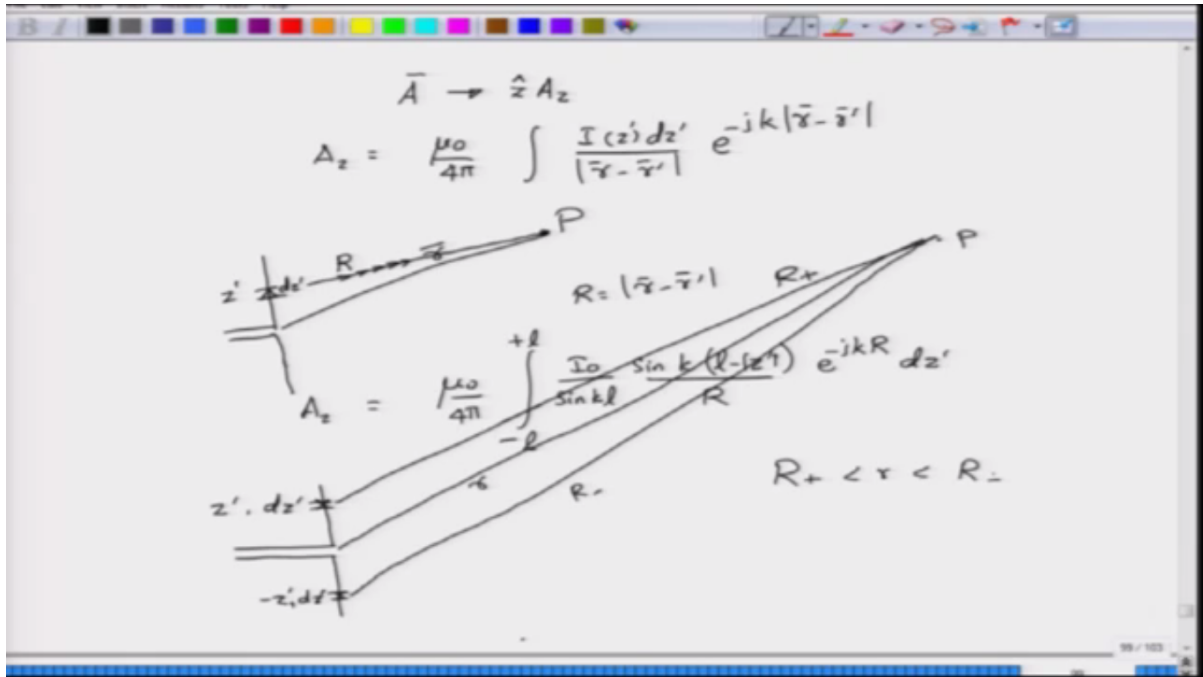 B I
Ā → ẑ A_z
A_z = μ₀/4π ∫ I(z')dz'/|r̄-r̄'| e^{-jk|r̄-r̄'|}
P
R r̄
z' dz'
P
R+
R = |r̄-r̄'|
A_z = μ₀/4π ∫_{-l}^{+l} I₀/sinkl sin k(l-|z'|)/R e^{-jkR} dz'
R+ < r < R-
r
R-
z', dz'
-z', dz'
99 / 103